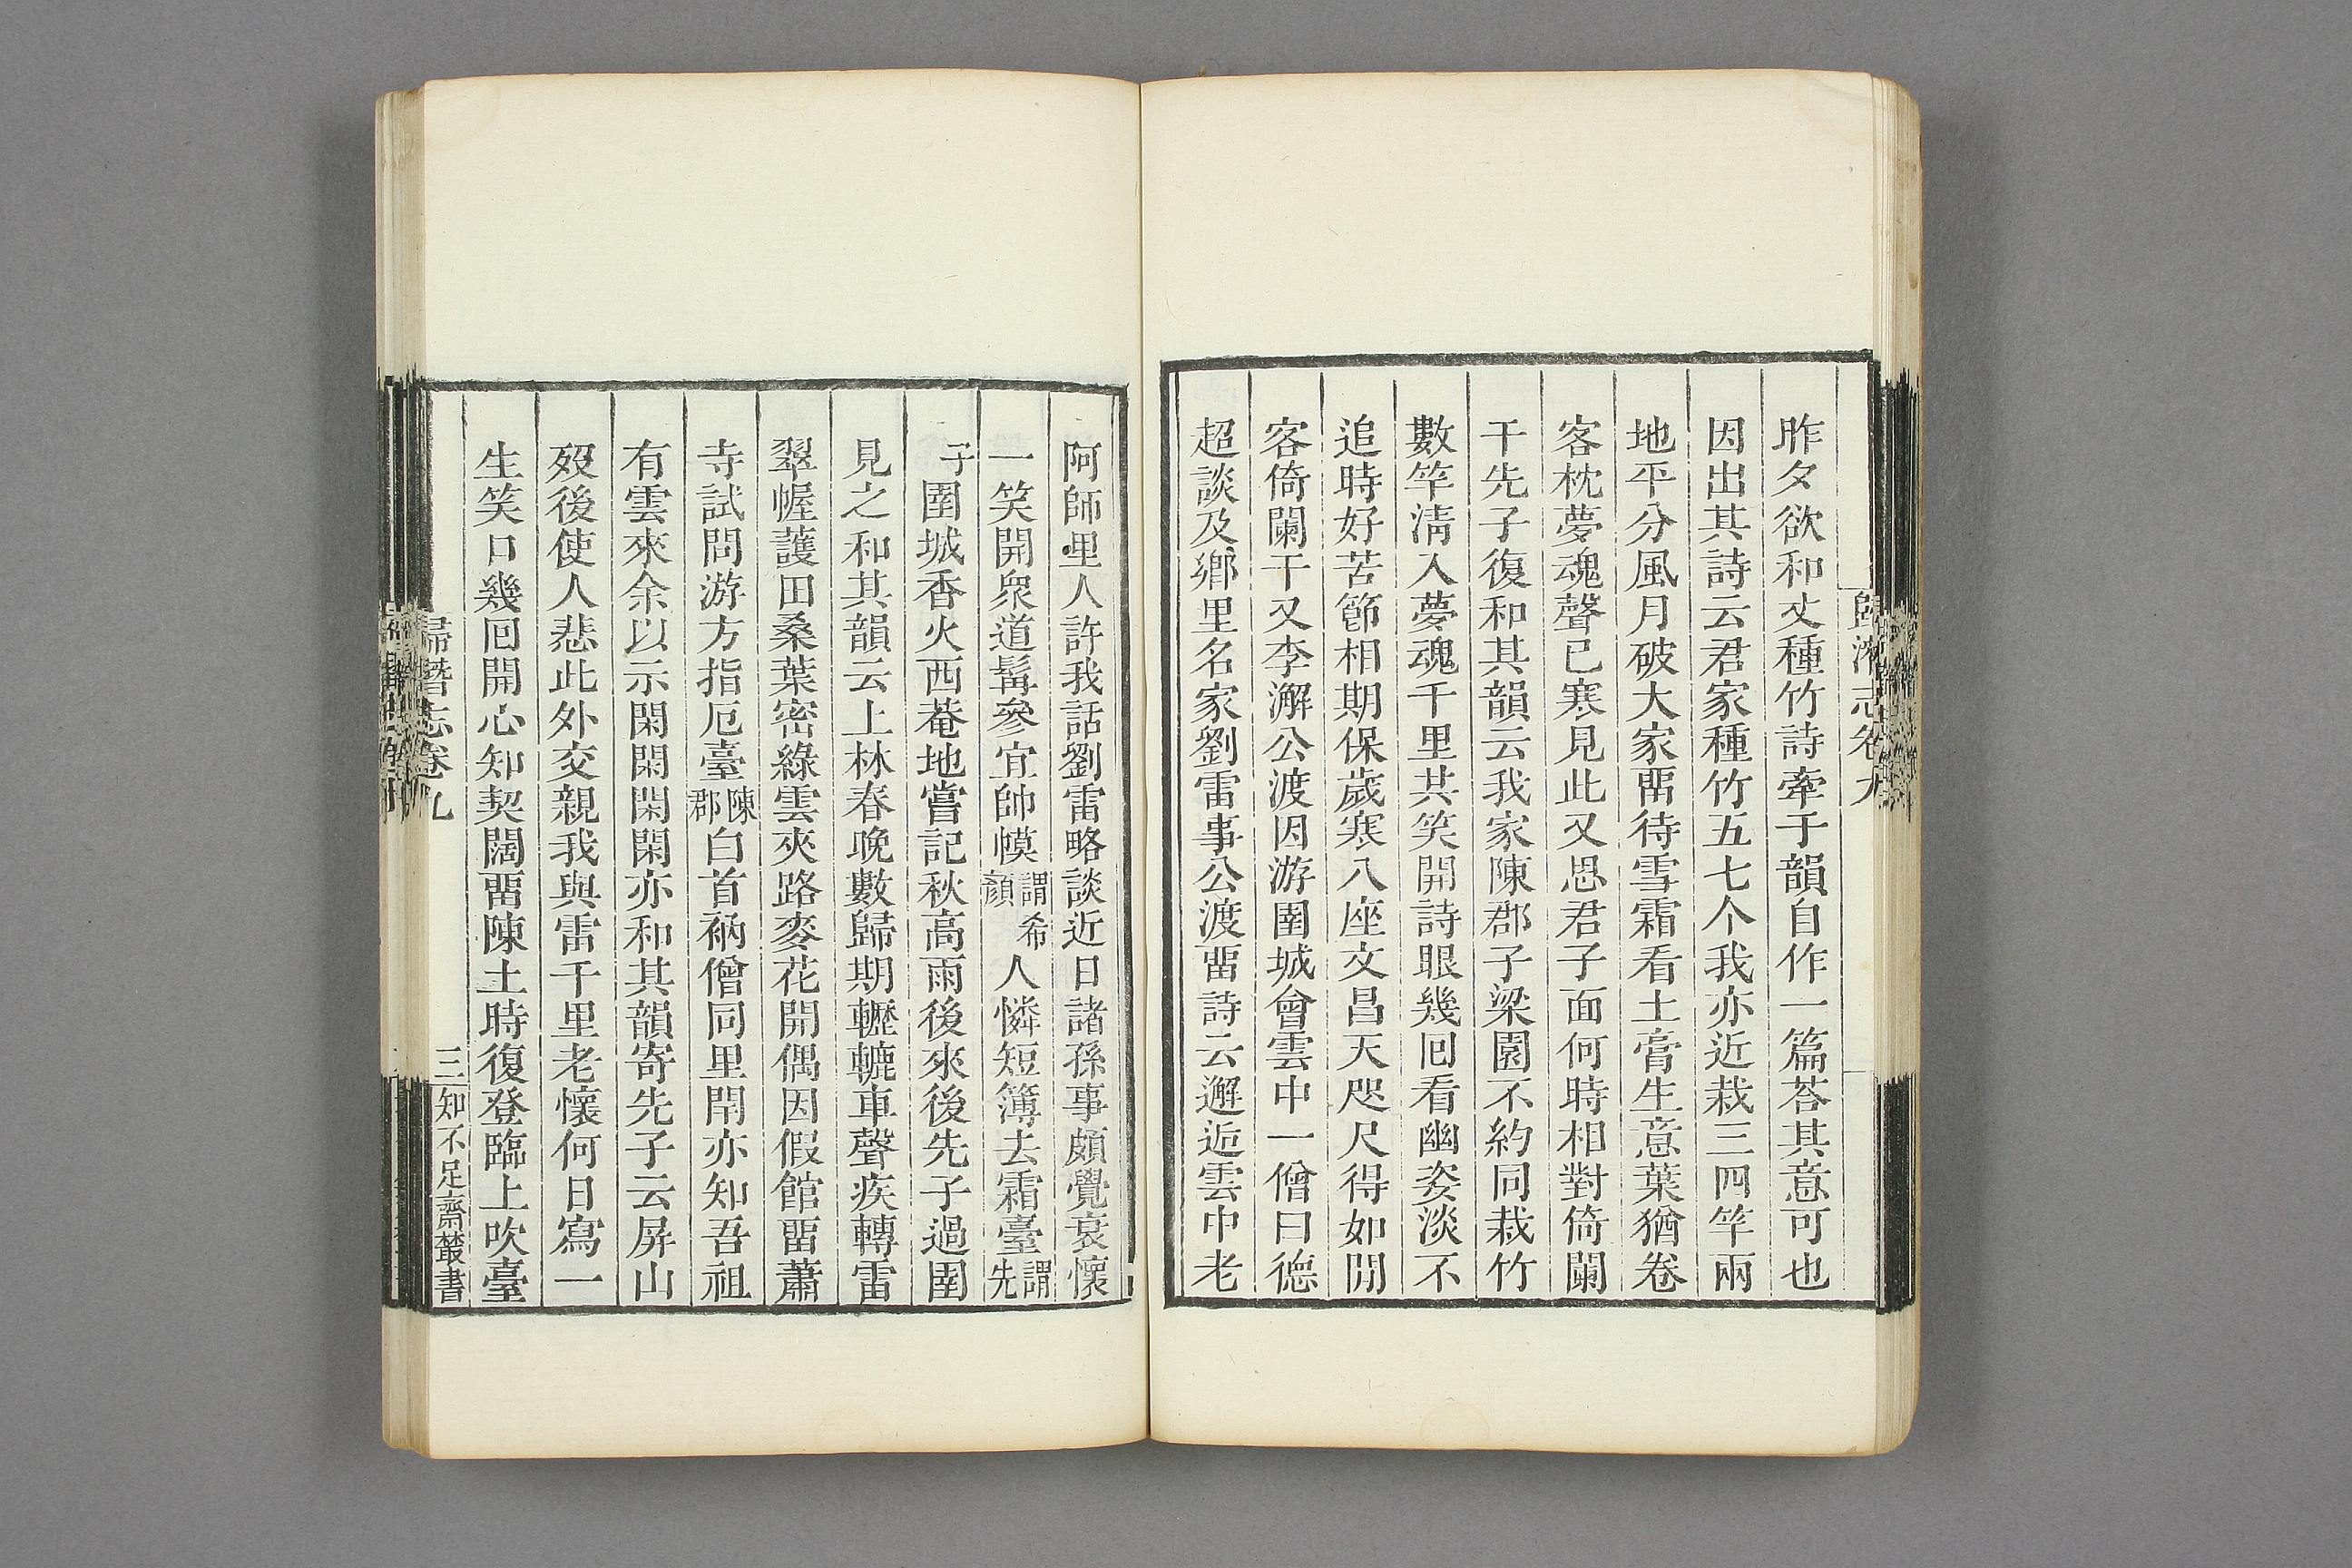 昨夕欲和丈種竹詩牽于韻自作一篇荅其意可也
因出其詩云君家種竹五七个我亦近栽三四竿兩
地平分風月破大家畱待雪霜看土膏生意葉猶卷
客枕夢魂聲已寒見此又思君子面何時相對倚闌
干先子復和其韻云我家陳郡子梁園不約同栽竹
數竿淸入夢魂千里共笑開詩眼幾囘看幽姿淡不
追時好苦節相期保歲寒八座文昌天咫尺得如閒
客倚闌干又李澥公渡因游圉城會雲中一僧曰德
超談及鄕里名家劉雷事公渡畱詩云邂逅雲中老
阿師里人許我話劉雷略談近日諸孫事頗覺衰懷
一笑開衆道髯參宜帥幙謂希顏人憐短簿去霜臺謂先
子圉城香火西菴地嘗記秋高雨後來後先子過圉
見之和其韻云上林春晚數歸期轣轆車聲疾轉雷
翠幄護田桑葉密綠雲夾路麥花開偶因假館畱蕭
寺試問游方指厄臺陳郡白首衲僧同里閈亦知吾祖
有雲來余以示閑閑閑閑亦和其韻寄先子云屏山
歿後使人悲此外交親我與雷千里老懷何日寫一
生笑口幾囘開心知契闊畱陳土時復登臨上吹臺
歸潛志卷九
三
知不足齋叢書